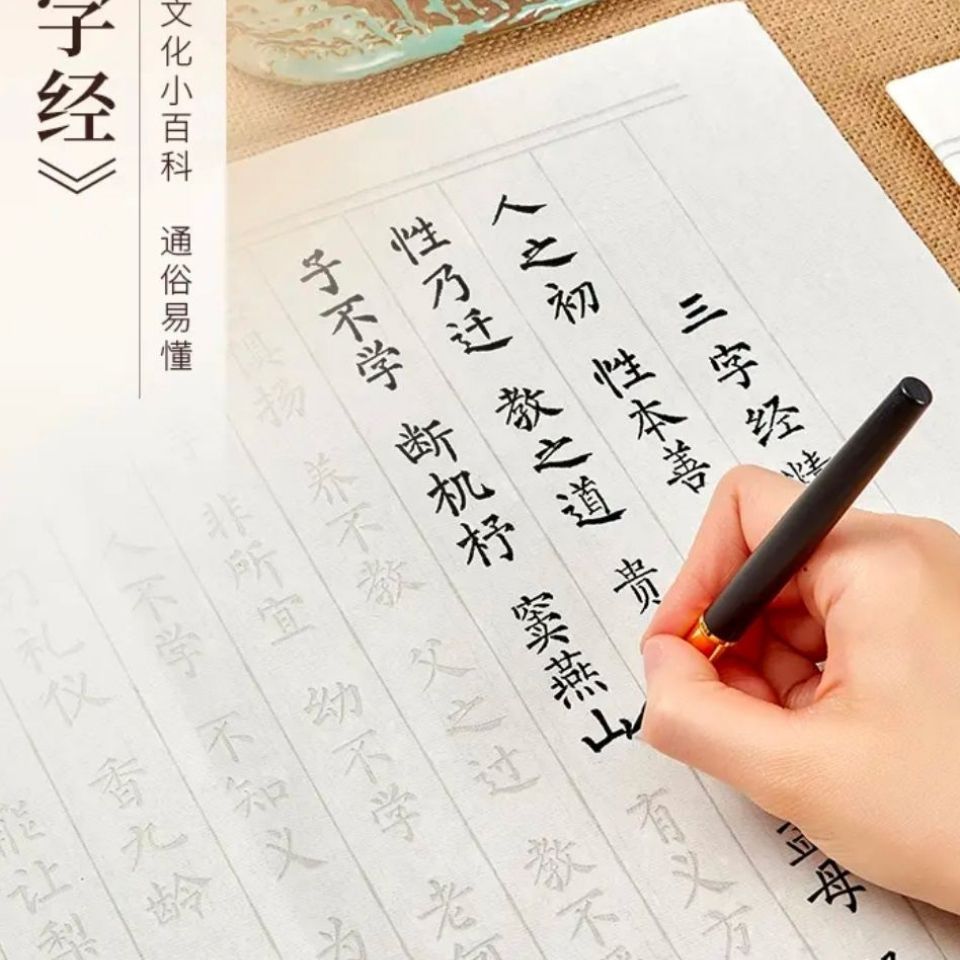 字经》
文化小百科 通俗易懂
三字经
人之初 性本善
性乃迁 教之道 贵 母
子不学 断机杼 窦燕山 有义方
俱扬 养不教 父之过 教不
非所宜 幼不学 老何
人不学 不知义 为
礼仪 香九龄
能让梨